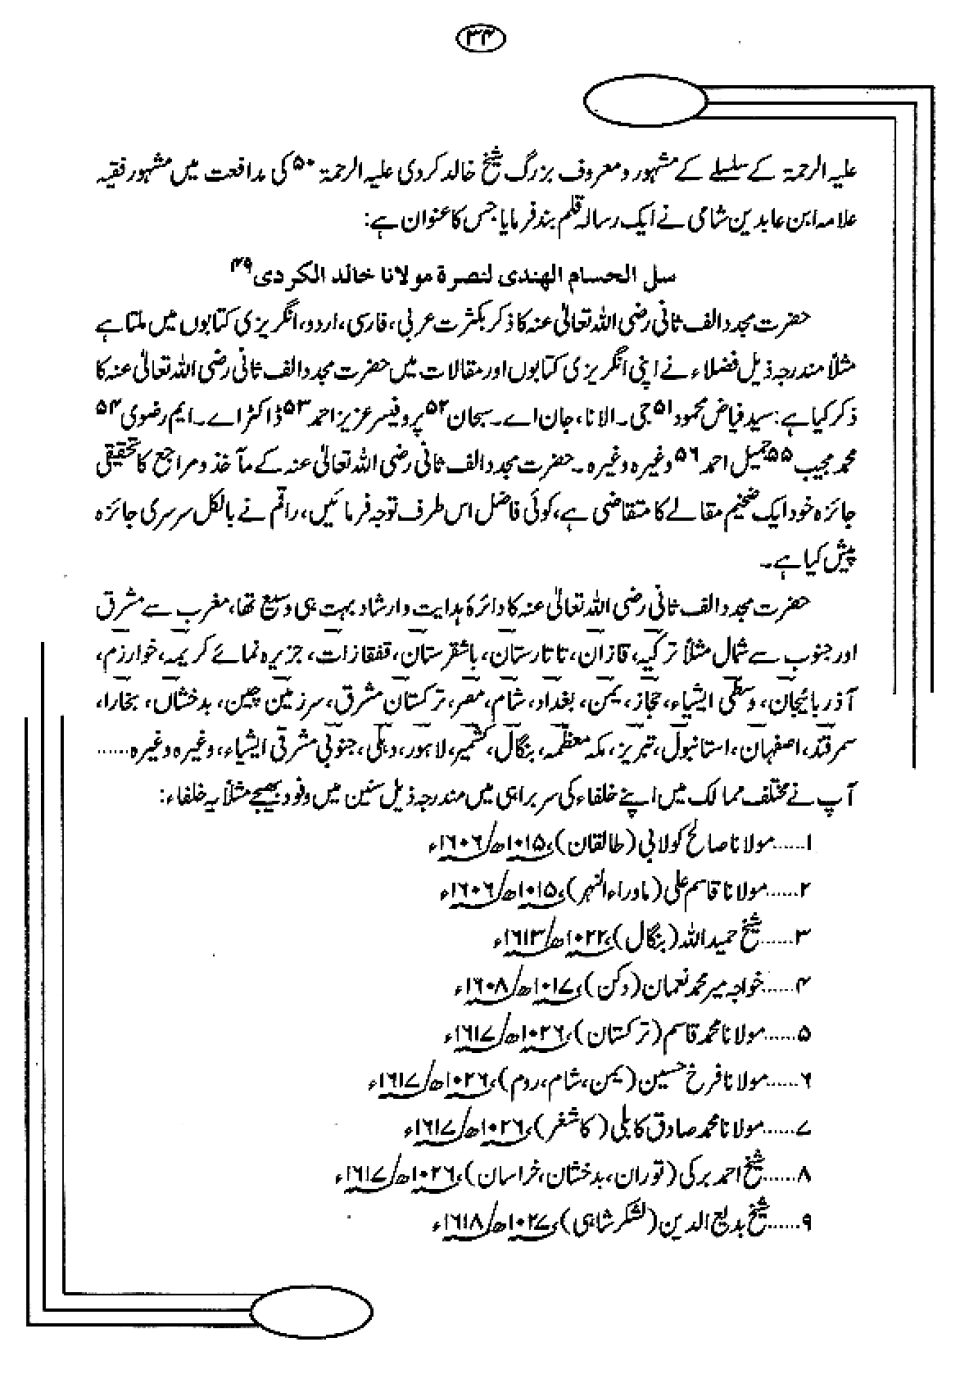 ۳۴
علیہ الرحمۃ کے سلسلے کے مشہور و معروف بزرگ شیخ خالد کردی علیہ الرحمۃ ۵۰ کی مدافعت میں مشہور فقیہ
علامہ ابن عابدین شامی نے ایک رسالہ قلم بند فرمایا جس کا عنوان ہے:
سل الحسام الهندی لنصرة مولانا خالد الكردی ۴۹
حضرت مجدد الف ثانی رضی اللہ تعالیٰ عنہ کا ذکر بکثرت عربی، فارسی، اردو، انگریزی کتابوں میں ملتا ہے
مثلاً مندرجہ ذیل فضلاء نے اپنی انگریزی کتابوں اور مقالات میں حضرت مجدد الف ثانی رضی اللہ تعالیٰ عنہ کا
ذکر کیا ہے: سید فیاض محمود ۵۱ جی۔ الانا، جان اے۔ سبحان ۵۲ پروفیسر عزیز احمد ۵۳ ڈاکٹر اے۔ ایم رضوی ۵۴
محمد مجیب ۵۵ جمیل احمد ۵۶ وغیرہ وغیرہ۔ حضرت مجدد الف ثانی رضی اللہ تعالیٰ عنہ کے مآخذ و مراجع کا تحقیقی
جائزہ خود ایک ضخیم مقالے کا متقاضی ہے، کوئی فاضل اس طرف توجہ فرمائیں، راقم نے بالکل سرسری جائزہ
پیش کیا ہے۔
حضرت مجدد الف ثانی رضی اللہ تعالیٰ عنہ کا دائرۂ ہدایت و ارشاد بہت ہی وسیع تھا، مغرب سے مشرق
اور جنوب سے شمال مثلاً ترکیہ، قازان، تاتارستان، باشقرستان، قفقازات، جزیرہ نمائے کریمہ، خوارزم،
آذربائیجان، وسطی ایشیاء، حجاز، یمن، بغداد، شام، مصر، ترکستان مشرق، سرزمین چین، بدخشاں، بخارا،
سمرقند، اصفہان، استانبول، تبریز، مکہ معظمہ، بنگال، کشمیر، لاہور، دہلی، جنوبی مشرقی ایشیاء، وغیرہ وغیرہ......
آپ نے مختلف ممالک میں اپنے خلفاء کی سربراہی میں مندرجہ ذیل سنین میں وفود بھیجے مثلاً یہ خلفاء:
۱......مولانا صالح کولابی (طالقان)، ۱۰۱۵ھ/۱۶۰۶ء
۲......مولانا قاسم علی (ماوراء النہر)، ۱۰۱۵ھ/۱۶۰۶ء
۳......شیخ حمید اللہ (بنگال)، ۱۰۲۲ھ/۱۶۱۳ء
۴......خواجہ میر محمد نعمان (دکن)، ۱۰۱۷ھ/۱۶۰۸ء
۵......مولانا محمد قاسم (ترکستان)، ۱۰۲۶ھ/۱۶۱۷ء
۶......مولانا فرخ حسین (یمن، شام، روم)، ۱۰۲۶ھ/۱۶۱۷ء
۷......مولانا محمد صادق کابلی (کاشغر)، ۱۰۲۶ھ/۱۶۱۷ء
۸......شیخ احمد برکی (توران، بدخشان، خراسان)، ۱۰۲۶ھ/۱۶۱۷ء
۹......شیخ بدیع الدین (لشکر شاہی)، ۱۰۲۷ھ/۱۶۱۸ء